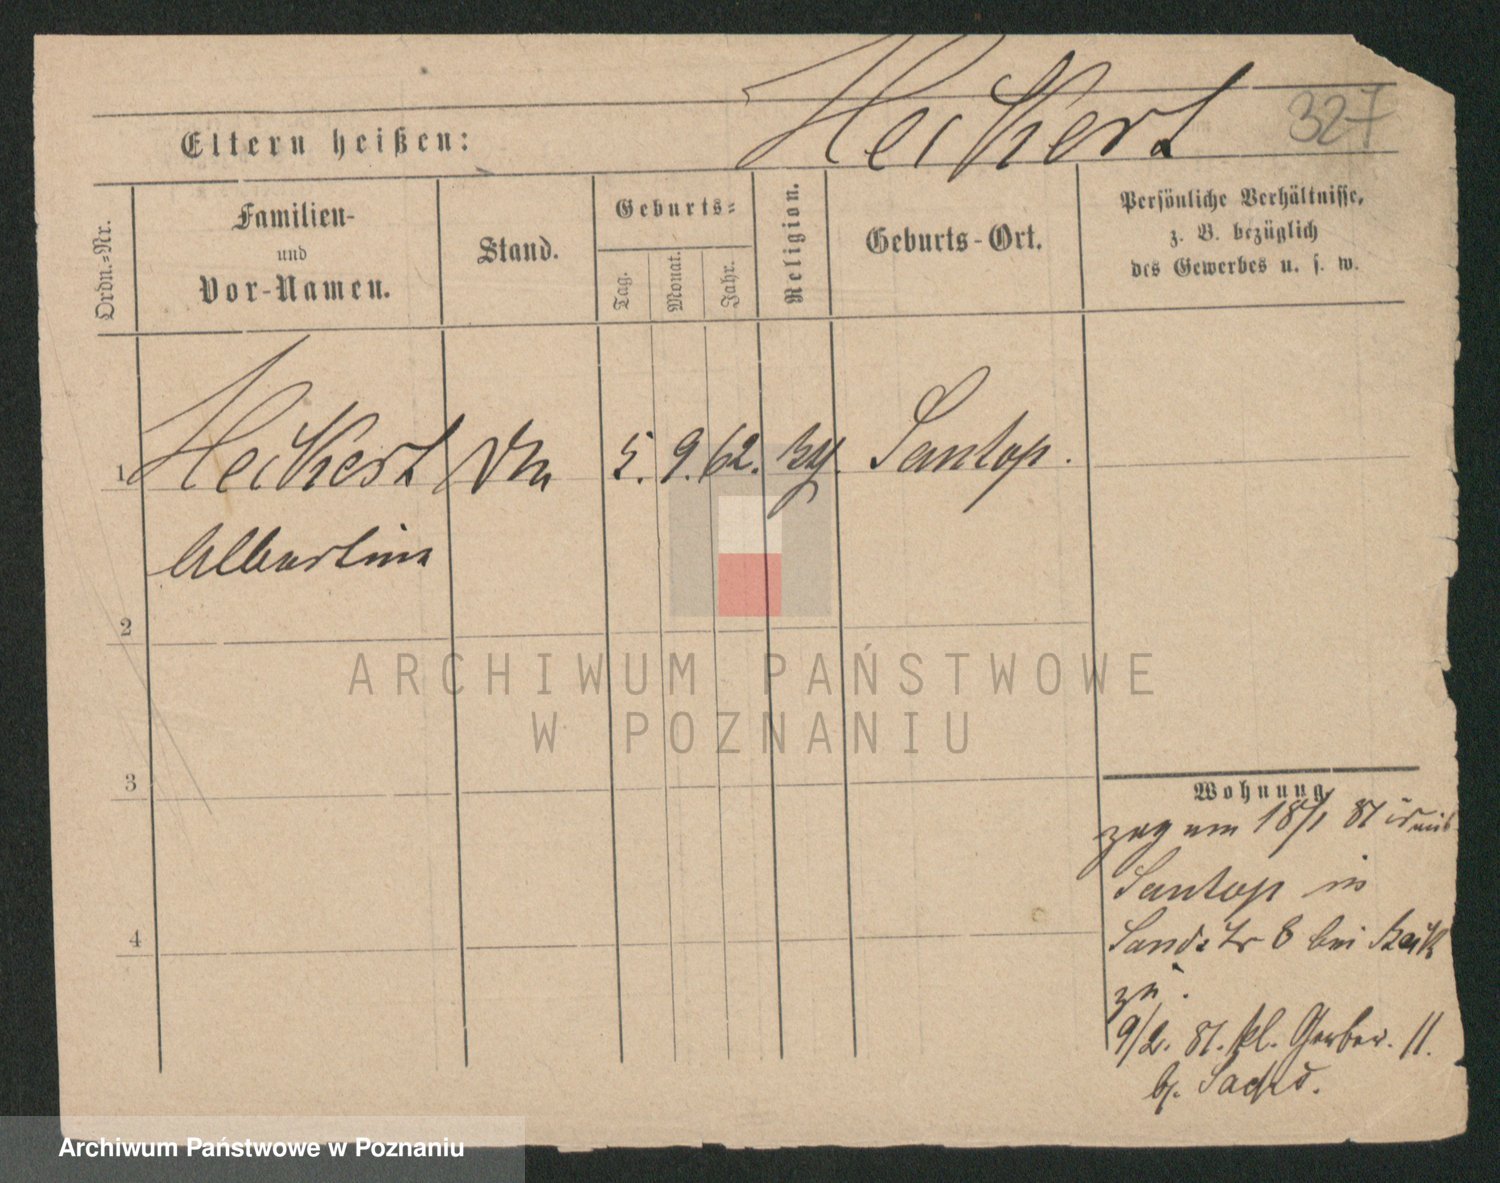 Heickert
327
Eltern heißen:
Ordn.-Nr.
Familien-
und
Vor-Namen.
Stand.
Geburts-
Tag.
Monat.
Jahr.
Religion.
Geburts-Ort.
Persönliche Verhältnisse,
z. B. bezüglich
des Gewerbes u. s. w.
1
Heickert
5. 9. 62.
Santop.
Albertine
2
ARCHIWUM PAŃSTWOWE
W POZNANIU
3
Wohnung
zog am 18/1 81
Santop in
Sandstr 8 bei
zu.
4
9/2. 81. kl. Gerber. 11.
b.
Archiwum Państwowe w Poznaniu